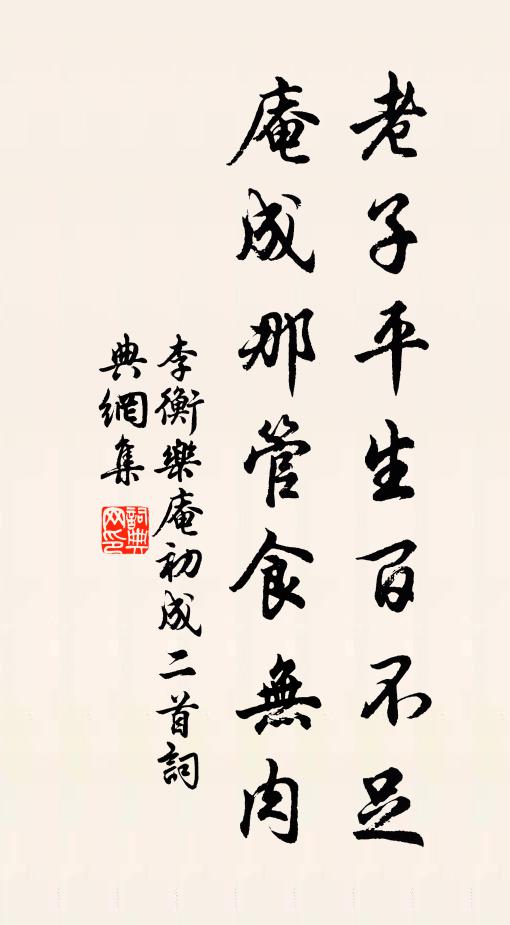 老子平生百不足
庵成那管食無肉
李衡樂庵初成二首詞
典網集
詞典網印